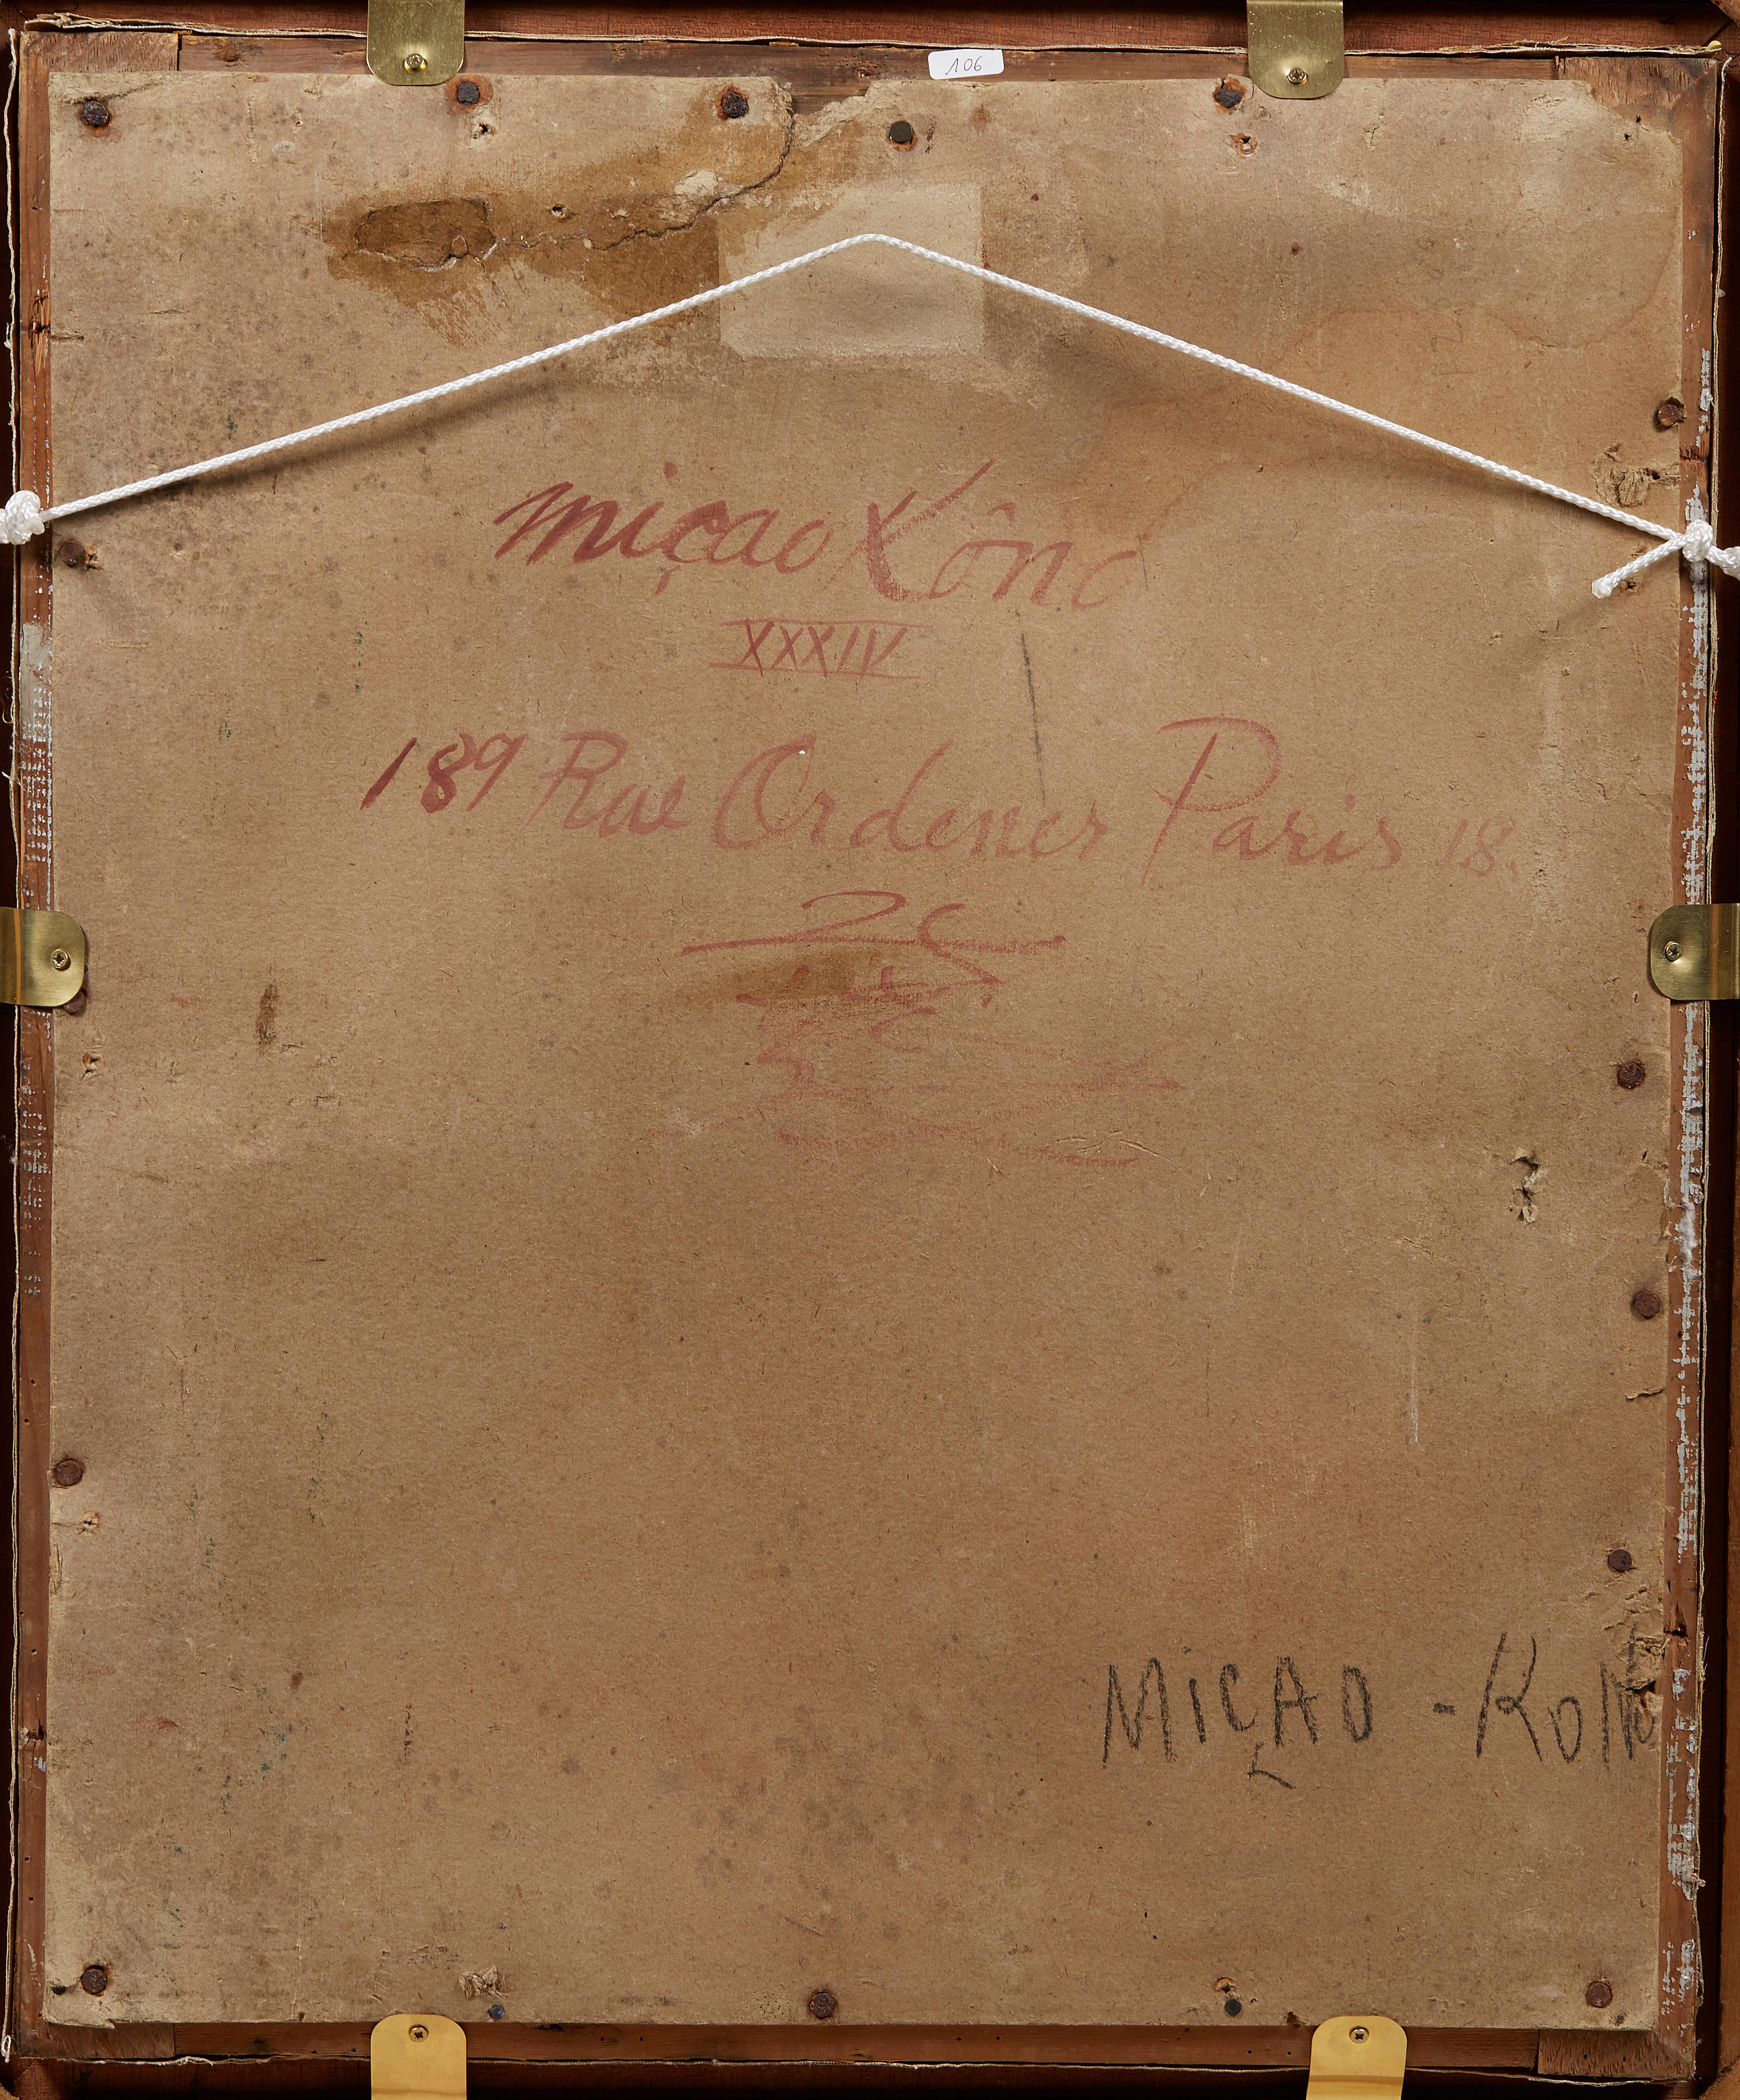 106
miçao Kôno
XXXIV
189 Rue Ordener Paris 18.
MiÇAO - KONO